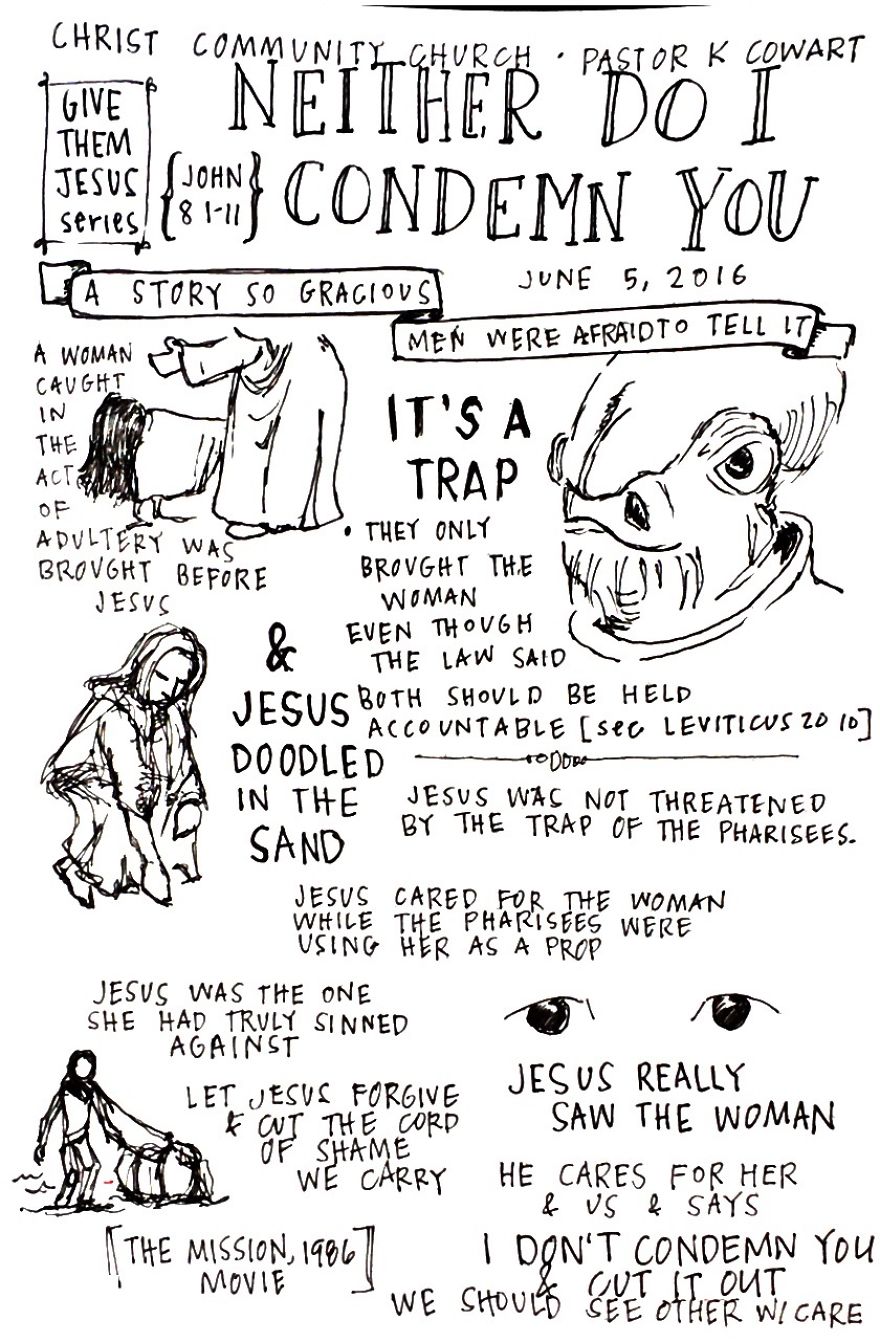 CHRIST COMMUNITY CHURCH · PASTOR K COWART
GIVE
THEM
JESUS
series
NEITHER DO I
{JOHN
8 1-11}
CONDEMN YOU
JUNE 5, 2016
A STORY SO GRACIOUS
MEN WERE AFRAID TO TELL IT
A WOMAN
CAUGHT
IN
THE
ACT
OF
ADULTERY WAS
BROUGHT BEFORE
JESUS
IT'S A
TRAP
• THEY ONLY
BROUGHT THE
WOMAN
EVEN THOUGH
THE LAW SAID
BOTH SHOULD BE HELD
ACCOUNTABLE [see LEVITICUS 20 10]
&
JESUS
DOODLED
IN THE
SAND
JESUS WAS NOT THREATENED
BY THE TRAP OF THE PHARISEES.
JESUS CARED FOR THE WOMAN
WHILE THE PHARISEES WERE
USING HER AS A PROP
JESUS WAS THE ONE
SHE HAD TRULY SINNED
AGAINST
LET JESUS FORGIVE
& CUT THE CORD
OF SHAME
WE CARRY
[THE MISSION, 1986
MOVIE]
JESUS REALLY
SAW THE WOMAN
HE CARES FOR HER
& US & SAYS
I DON'T CONDEMN YOU
& CUT IT OUT
WE SHOULD SEE OTHER W/ CARE